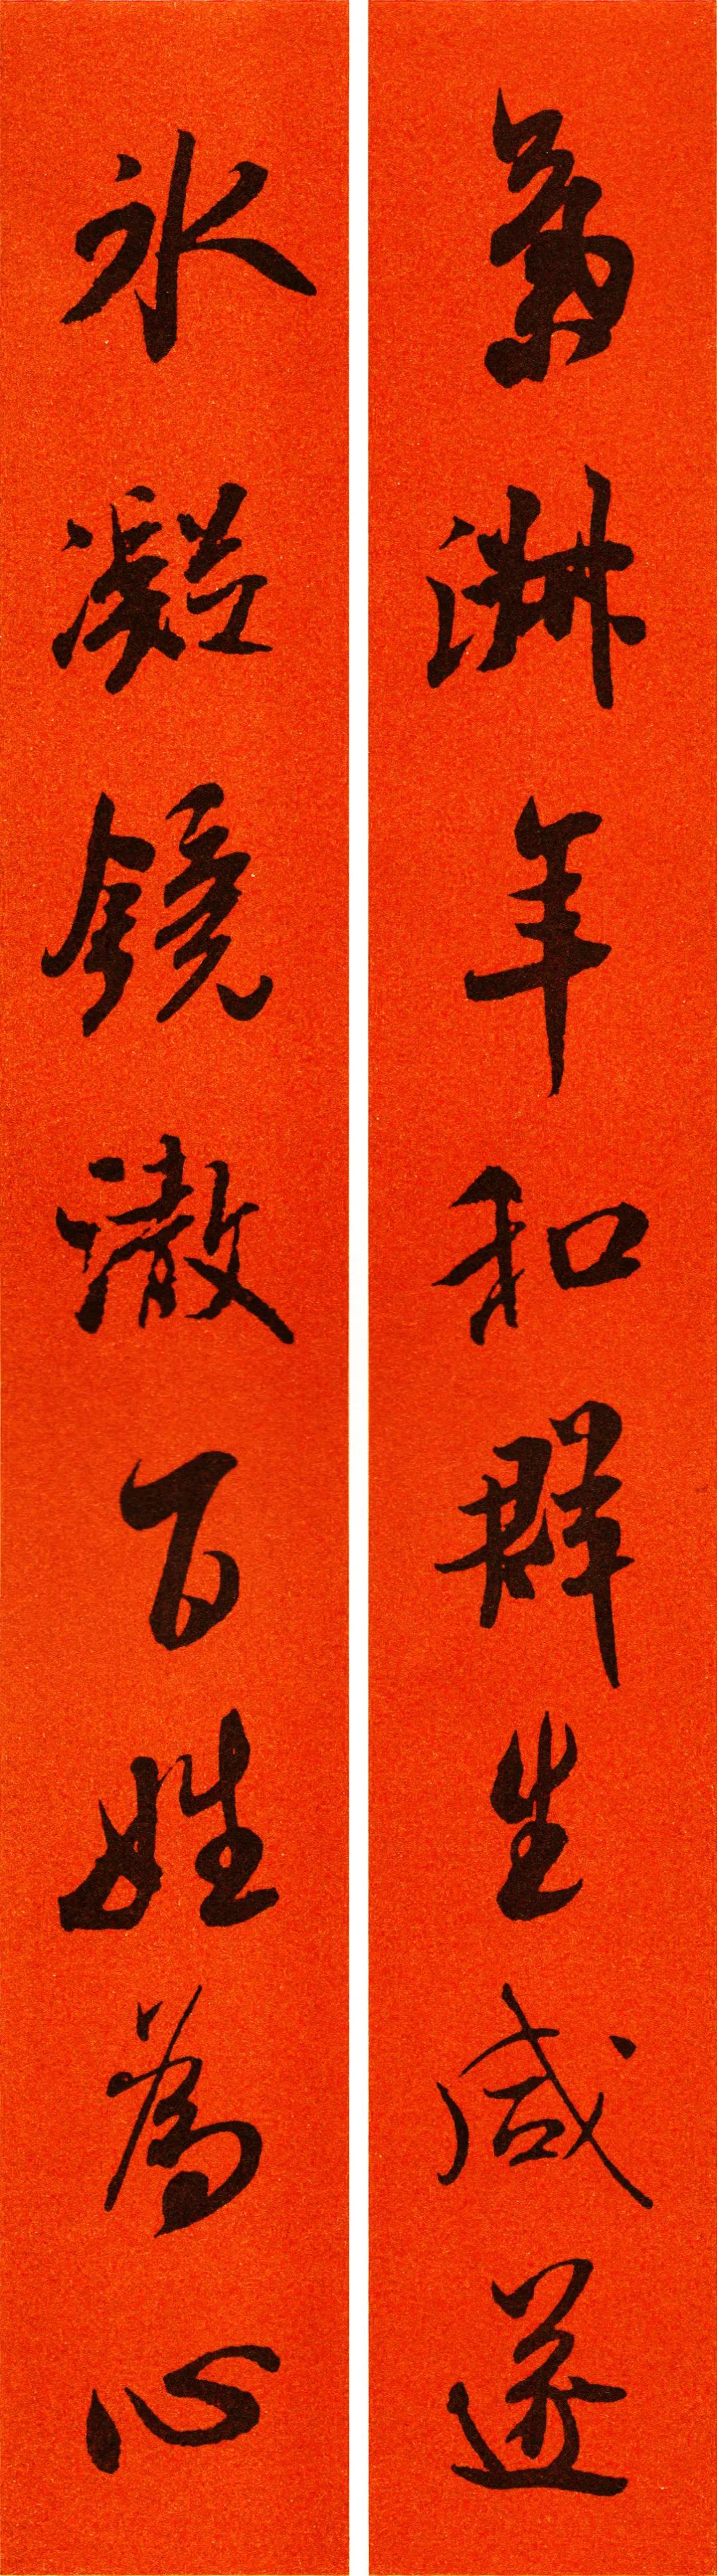 氣淋年和群生咸遂
氷凝鏡澈百姓為心